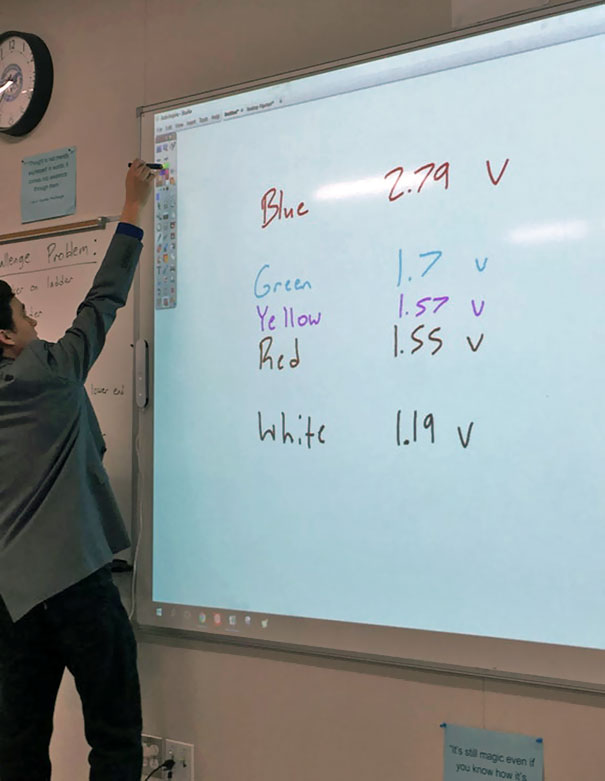 "Thought is not merely
expressed in words; it
comes into existence
through them."
llenge Problem:
er on ladder
lower end
Blue 2.79 V
Green 1.7 V
Yellow 1.57 V
Red 1.55 V
White 1.19 V
"It's still magic even if
you know how it's